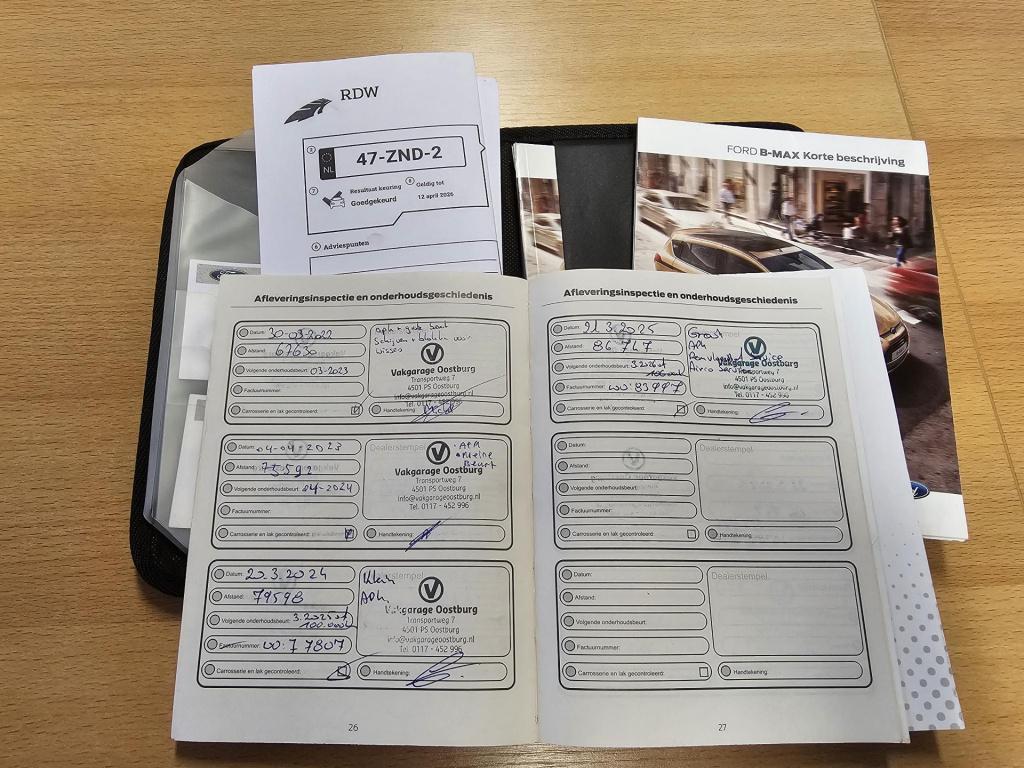 RDW
3
NL
47-ZND-2
7
Resultaat keuring
Goedgekeurd
8
Geldig tot
12 april 2026
6 Adviespunten
FORD B-MAX Korte beschrijving
Afleveringsinspectie en onderhoudsgeschiedenis
Datum: 30-03-2022
Afstand: 67630
Volgende onderhoudsbeurt: 03-2023
Factuurnummer:
Carrosserie en lak gecontroleerd:
Apk + grote beurt
Schijven + blokken voor
wissers
Vakgarage Oostburg
Transportweg 7
4501 PS Oostburg
info@vakgarageoostburg.nl
Tel. 0117 - 452 996
Handtekening:
Datum: 04-04-2023
Afstand: 75592
Volgende onderhoudsbeurt: 04-2024
Factuurnummer:
Carrosserie en lak gecontroleerd:
Dealerstempel
• APK
• Kleine
Beurt
Vakgarage Oostburg
Transportweg 7
4501 PS Oostburg
info@vakgarageoostburg.nl
Tel. 0117 - 452 996
Handtekening:
Datum: 20.3.2024
Afstand: 79598
Volgende onderhoudsbeurt: 3.2025 of
100.000
Factuurnummer: 00:77807
Carrosserie en lak gecontroleerd:
Klein
APK
Vakgarage Oostburg
Transportweg 7
4501 PS Oostburg
info@vakgarageoostburg.nl
Tel. 0117 - 452 996
Handtekening:
26
Afleveringsinspectie en onderhoudsgeschiedenis
Datum: 21.3.2025
Afstand: 86747
Volgende onderhoudsbeurt: 3.2026 of
Factuurnummer: 00:83997
Carrosserie en lak gecontroleerd:
Groot
APK
Airco Service
Vakgarage Oostburg
Transportweg 7
4501 PS Oostburg
info@vakgarageoostburg.nl
Tel. 0117 - 452 996
Handtekening:
Datum:
Afstand:
Volgende onderhoudsbeurt:
Factuurnummer:
Carrosserie en lak gecontroleerd:
Dealerstempel
Handtekening:
Datum:
Afstand:
Volgende onderhoudsbeurt:
Factuurnummer:
Carrosserie en lak gecontroleerd:
Dealerstempel
Handtekening:
27